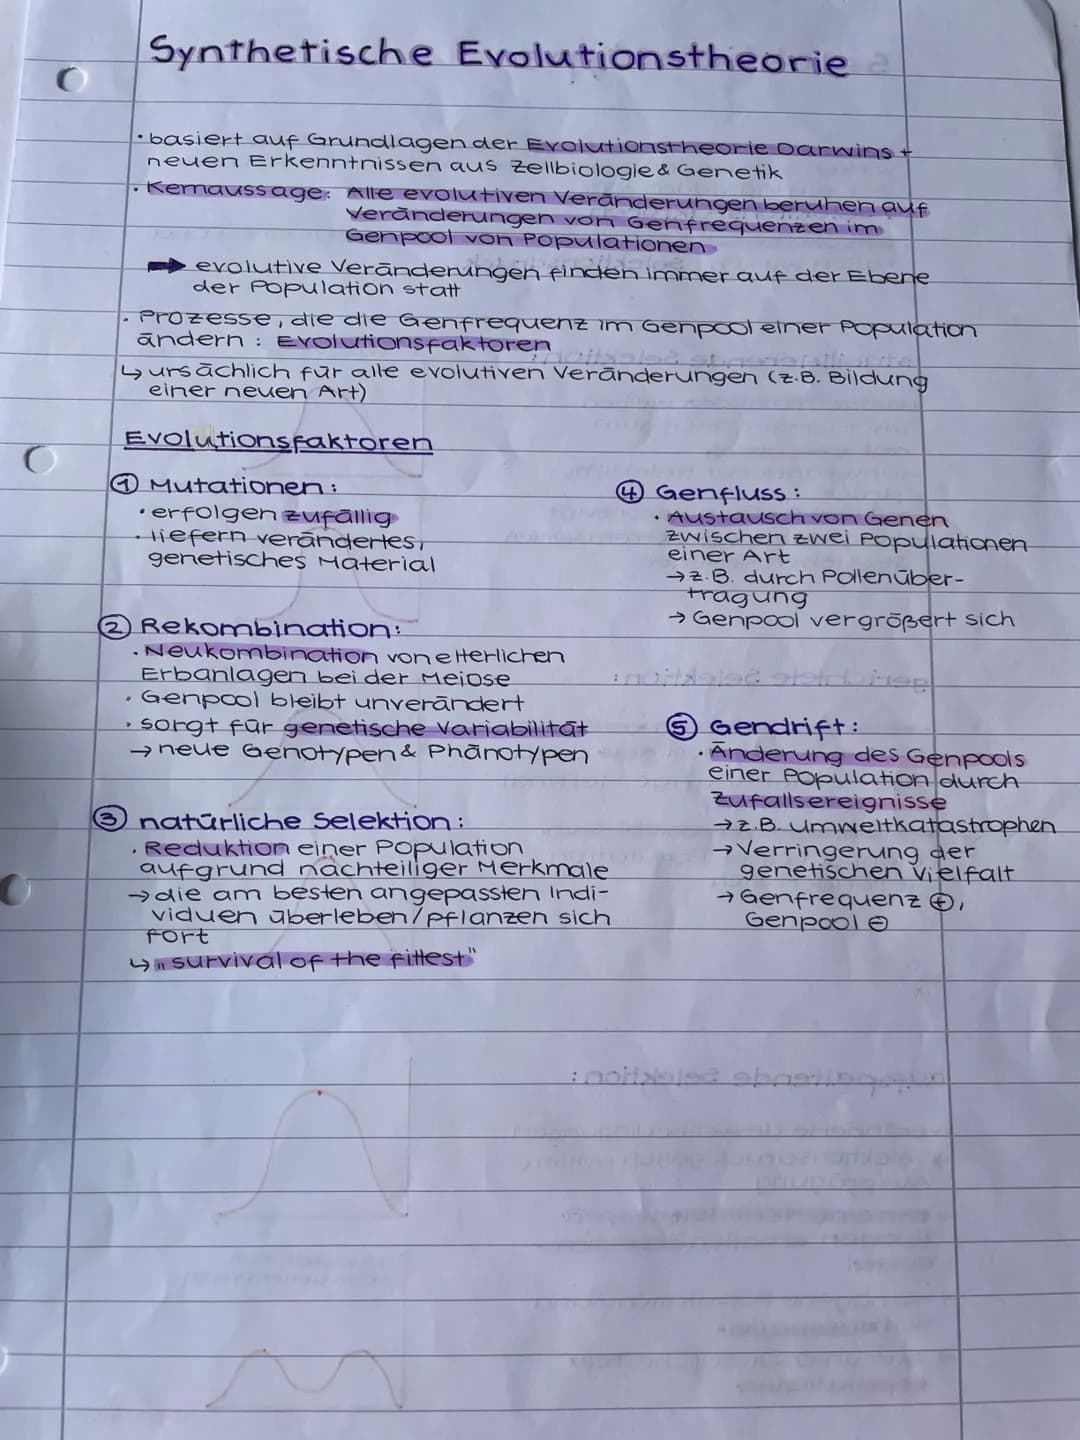 Synthetische Evolutionstheorie
• basiert auf Grundlagen der Evolutionstheorie Darwins +
neuen Erkenntnissen aus Zellbiologie & Genetik
• Kernaussage: Alle evolutiven Veränderungen beruhen auf
Veränderungen von Genfrequenzen im
Genpool von Populationen
➡ evolutive Veränderungen finden immer auf der Ebene
der Population statt
• Prozesse, die die Genfrequenz im Genpool einer Population
ändern : Evolutionsfaktoren
↳ ursächlich für alle evolutiven Veränderungen (z.B. Bildung
einer neuen Art)
Evolutionsfaktoren
① Mutationen:
• erfolgen zufällig
• liefern verändertes,
genetisches Material
② Rekombination:
• Neukombination von elterlichen
Erbanlagen bei der Meiose
• Genpool bleibt unverändert
• sorgt für genetische Variabilität
→ neue Genotypen & Phänotypen
③ natürliche Selektion:
• Reduktion einer Population
aufgrund nachteiliger Merkmale
→ die am besten angepassten Indi-
viduen überleben/pflanzen sich
fort
↳ „survival of the fittest"
④ Genfluss:
• Austausch von Genen
zwischen zwei Populationen
einer Art
→ z.B. durch Pollenüber-
tragung
→ Genpool vergrößert sich
⑤ Gendrift:
• Änderung des Genpools
einer Population durch
Zufallsereignisse
→ z.B. Umweltkatastrophen
→ Verringerung der
genetischen Vielfalt
→ Genfrequenz ⊕,
Genpool ⊖